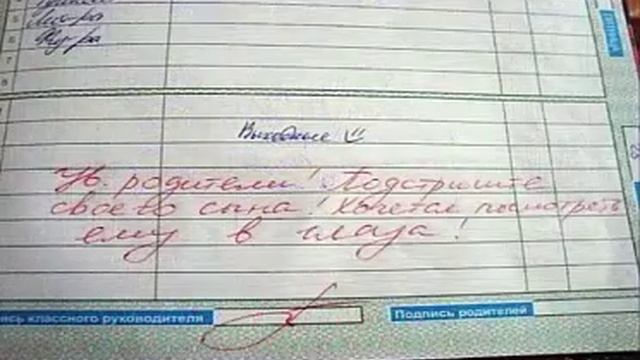 5
6
7
8
Выходные
Ув. родители! Подстригите
своего сына! Хочется посмотреть
ему в глаза!
ись классного руководителя
Подпись родителей